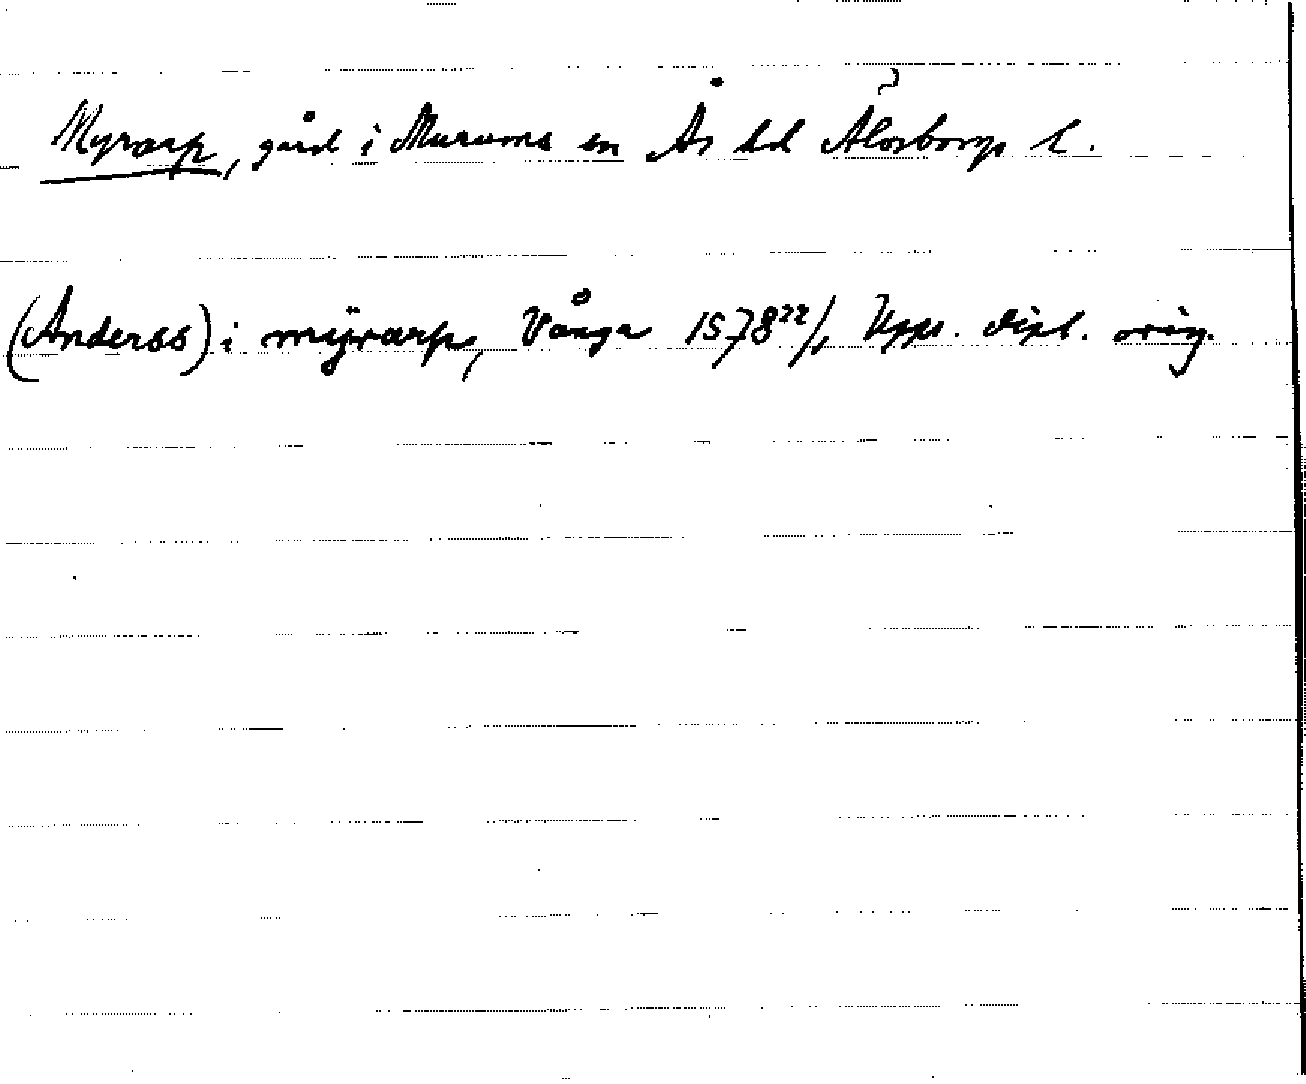 Myrarp, gård i Murums sn Ås hd Älvsborgs l.
(Anderss) i mÿrarp, Vånga 1578 22/1 Upps. dipl. orig.